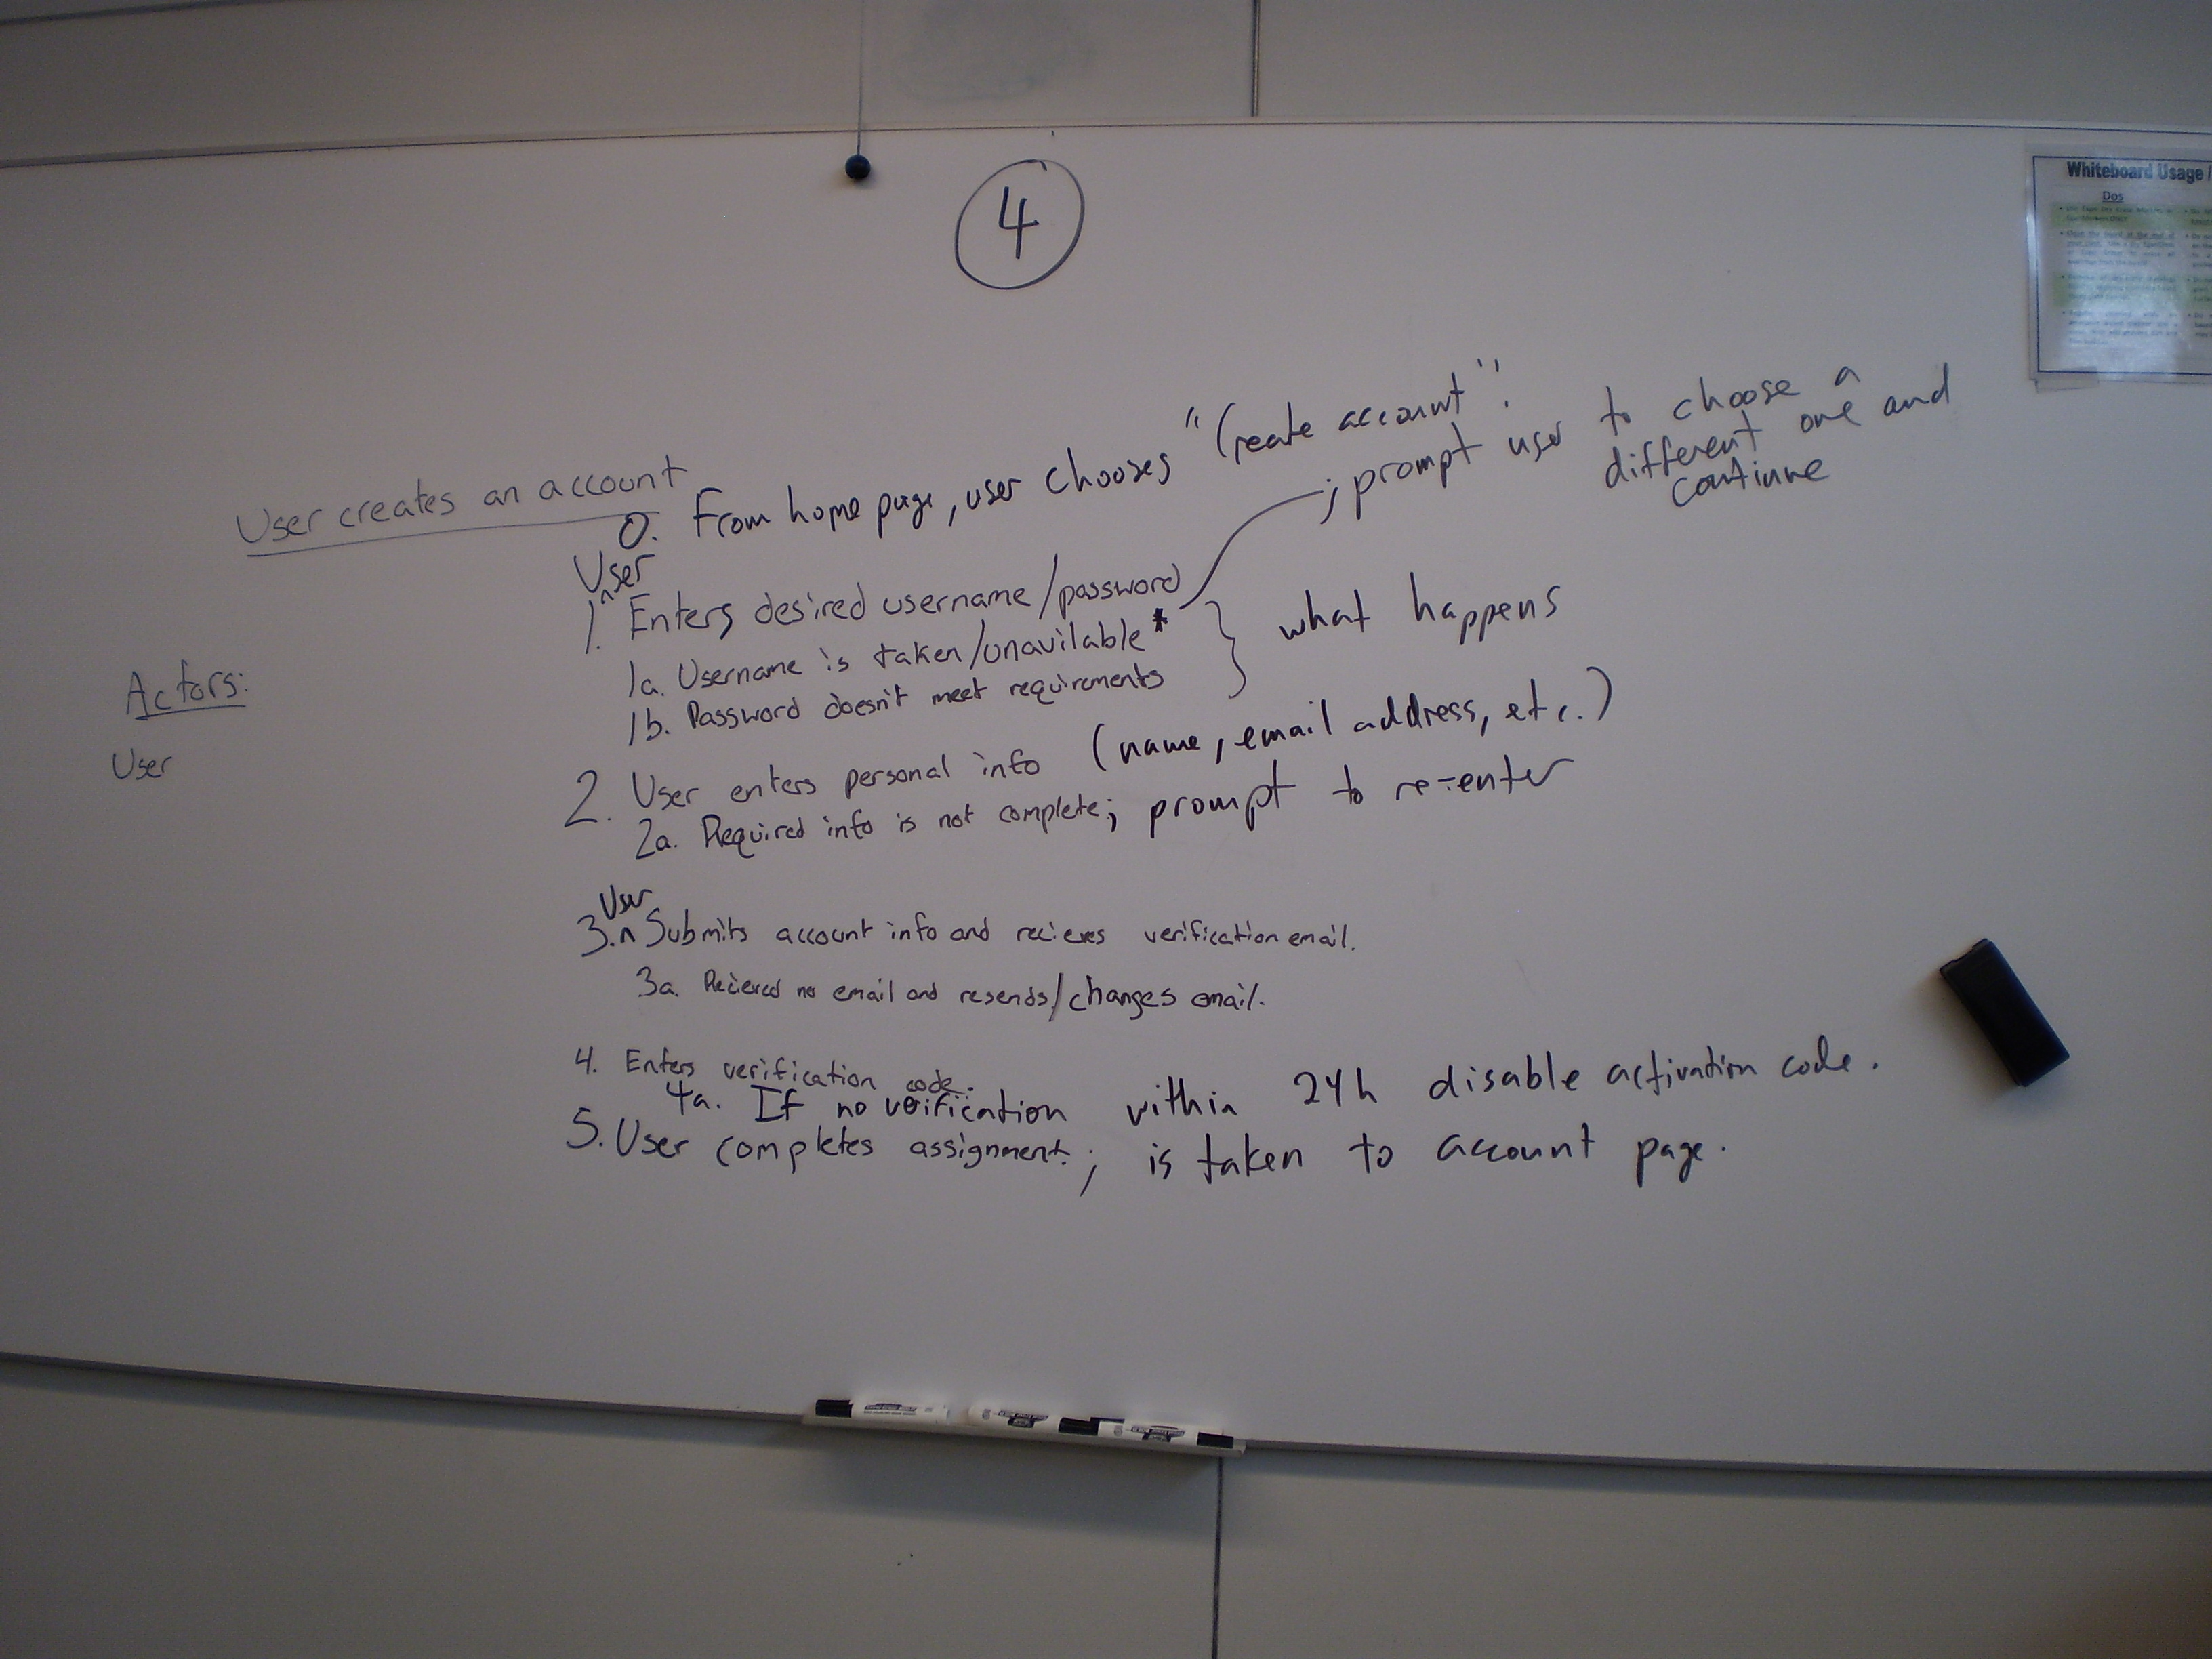 4
Whiteboard Usage
Dos
User creates an account
0. From home page, user chooses "Create account".
; prompt user to choose a
different one and
continue
User
1.^ Enters desired username/password
1a. Username is taken/unavilable*
1b. Password doesn't meet requirements
} what happens
Actors:
User
2. User enters personal info (name, email address, etc.)
2a. Required info is not complete; prompt to re-enter
User
3.^ Submits account info and recieves verification email.
3a. Recieved no email and resends/changes email.
4. Enters verification code.
4a. If no verification within 24h disable activation code.
5. User completes assignment.; is taken to account page.